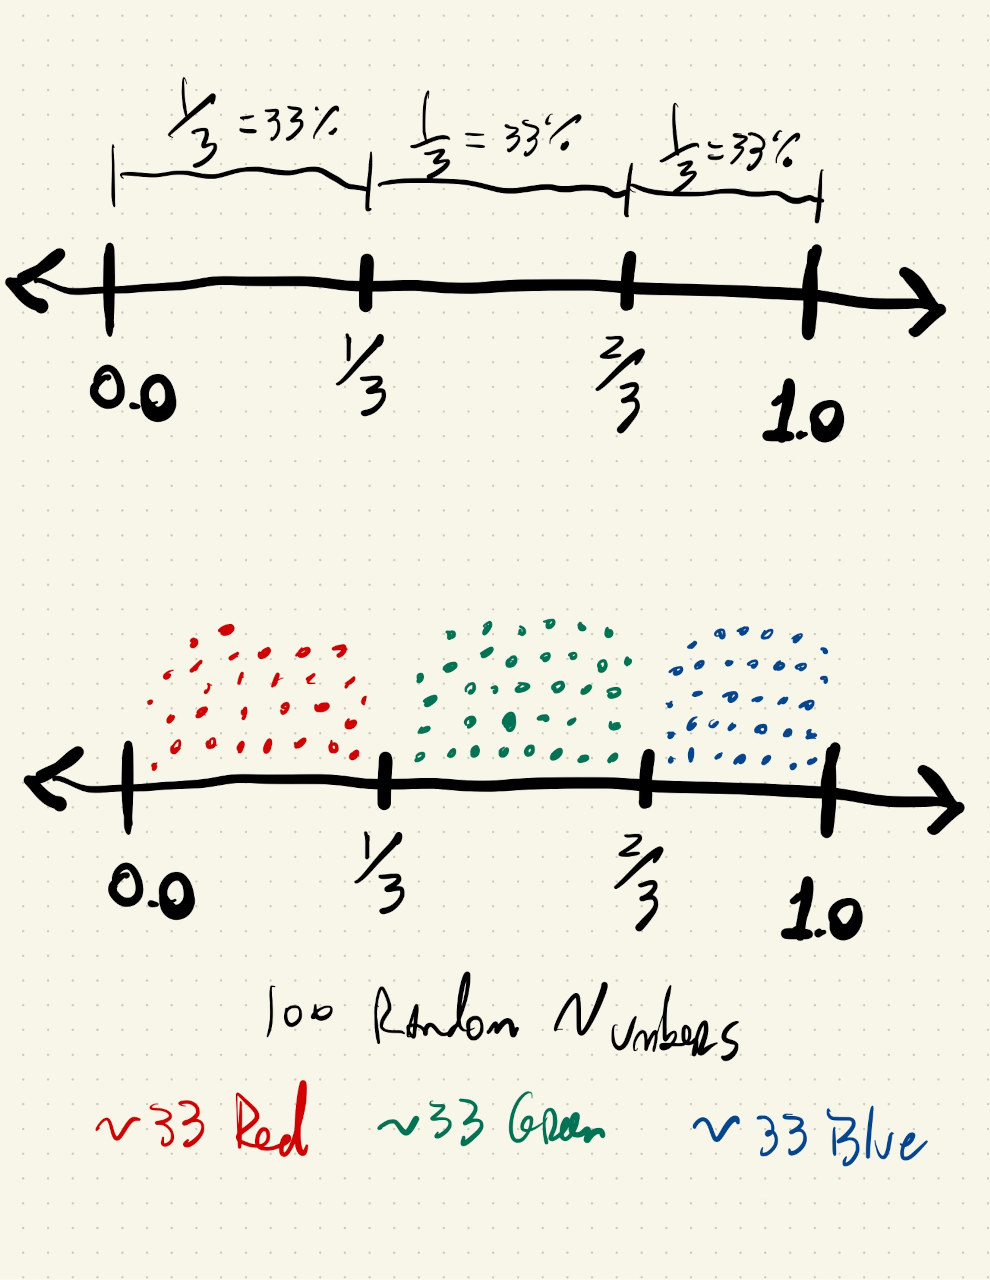 1/3 = 33% 1/3 = 33% 1/3 = 33%
0.0 1/3 2/3 1.0
0.0 1/3 2/3 1.0
100 Random Numbers
~33 Red ~33 Green ~33 Blue